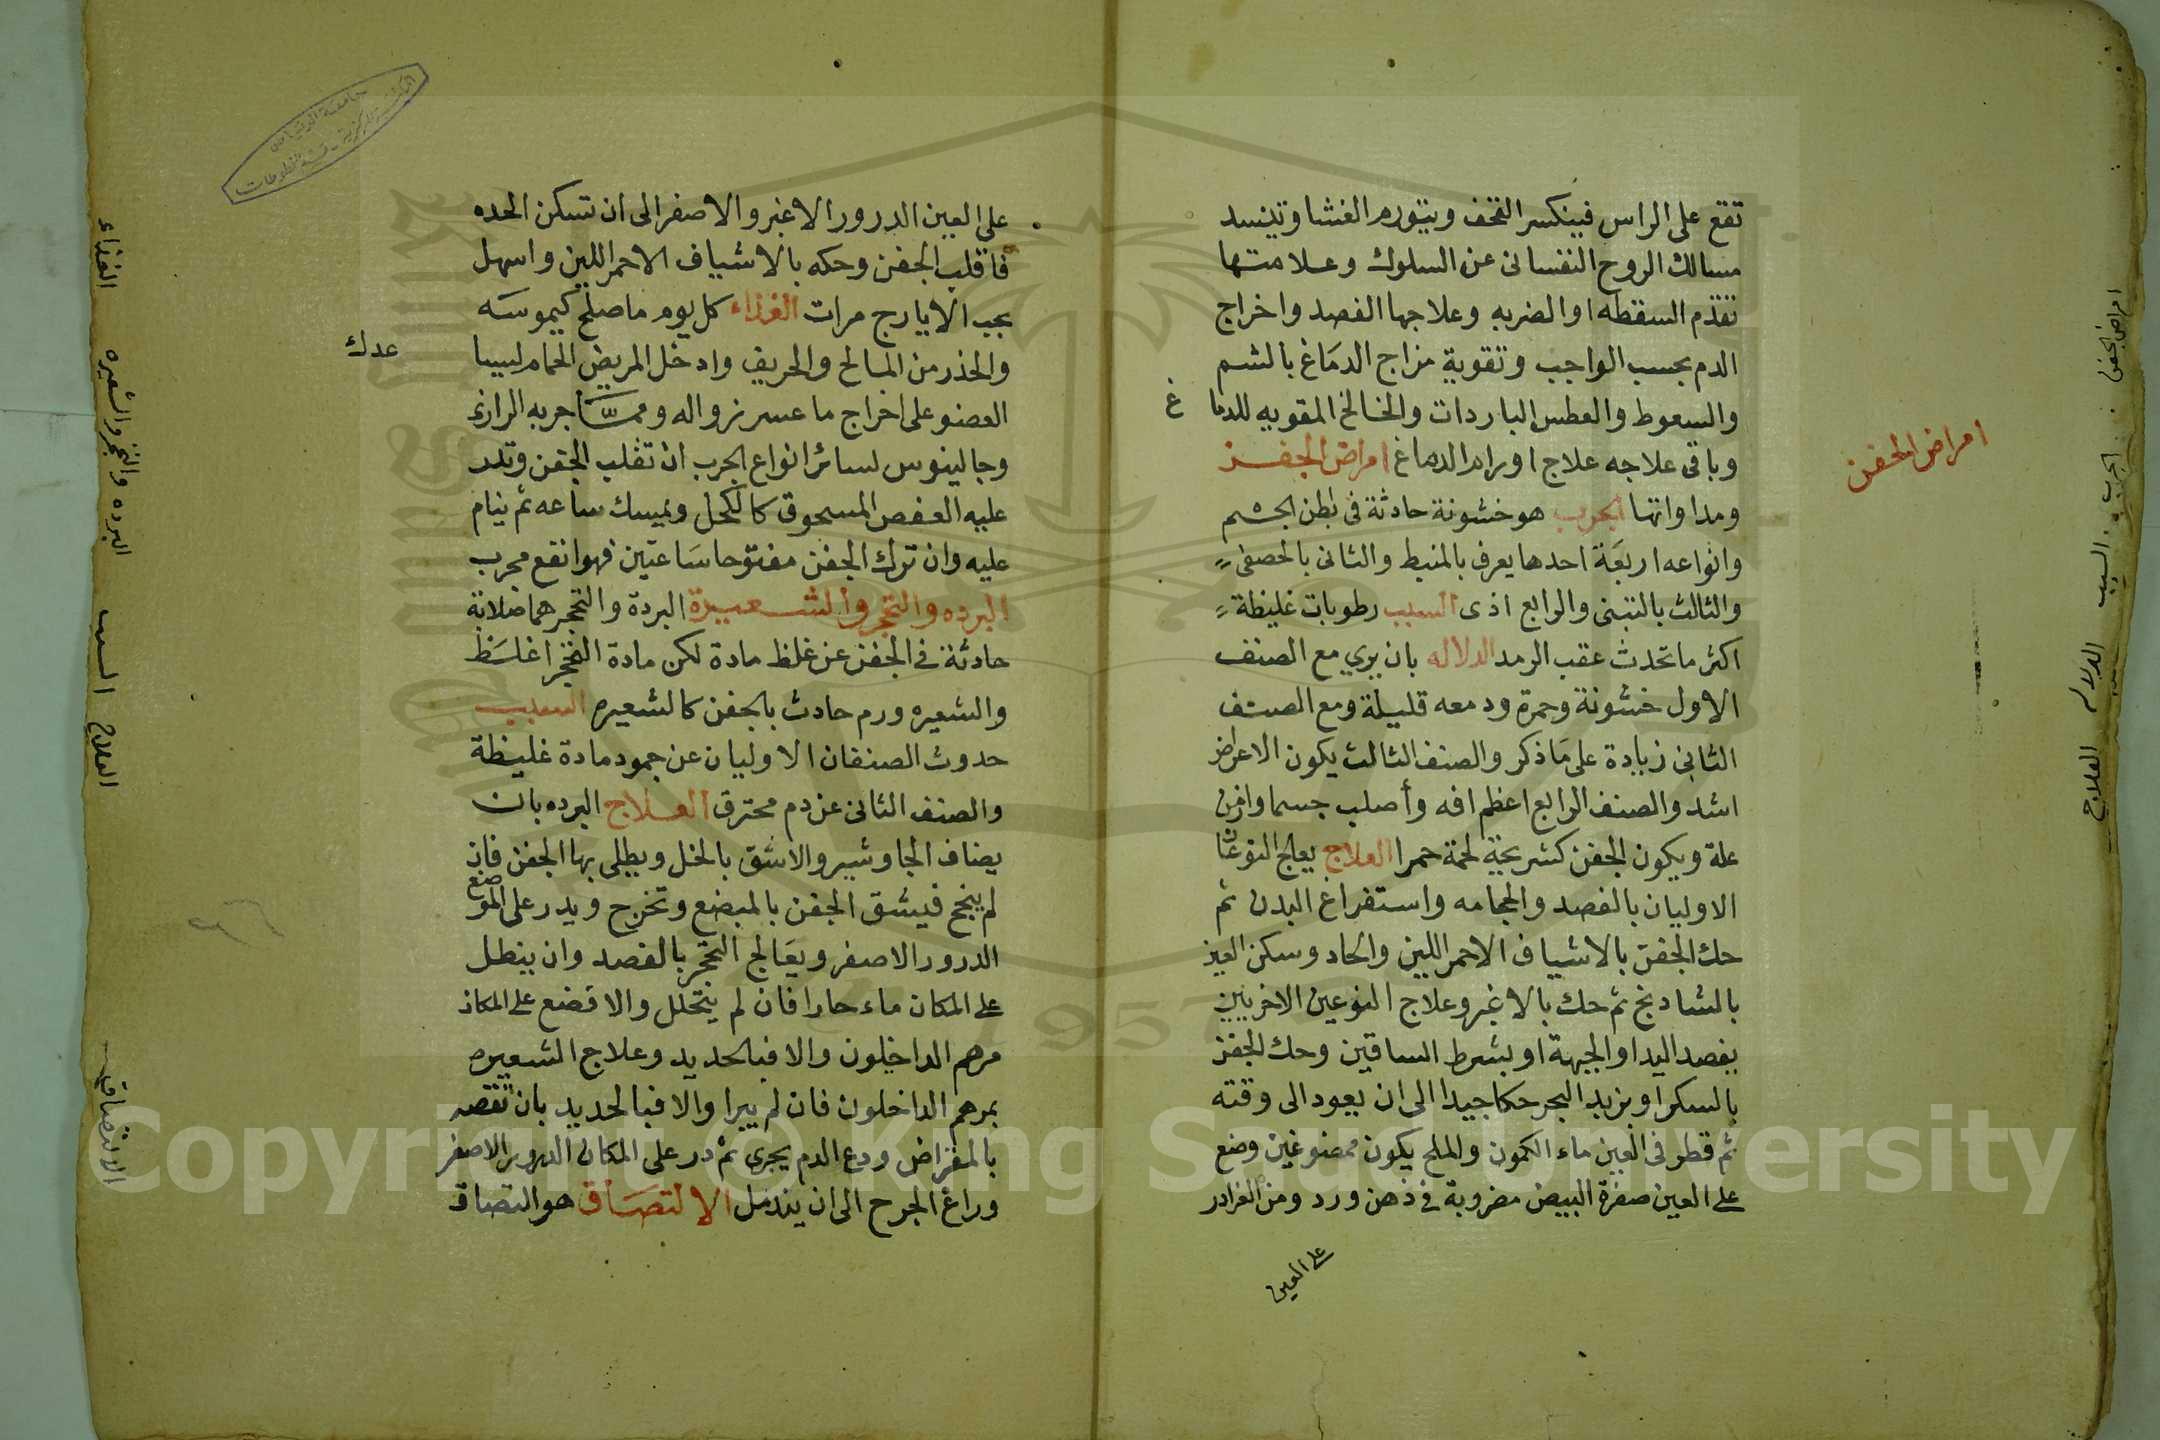 تقع على الراس فينكسر القحف ويتورم الغشا وتينسد
مسالك الروح النفسانى عن السلوك وعلامتها
تقدم السقطه او الضربه وعلاجها الفصد واخراج
الدم بحسب الواجب وتقوية مزاج الدماغ بالشم
والسعوط والعطس الباردات والخالخ المقويه للدماغ
وباقى علاجه علاج اورام الدماغ امراض الجفن
ومداواتها الجرب هو خشونة حادثة فى بطن الجشم
وانواعه اربعة احدها يعرف بالمنبط والثانى بالحصفى
والثالث بالتينى والرابع اذى السبب رطوبات غليظة
اكثر ما تحدث عقب الرمد الدلاله بان يرى مع الصنف
الاول خشونة وحمرة ودمعه قليلة ومع الصنف
الثانى زيادة على ما ذكر والصنف الثالث يكون الاعراض
اشد والصنف الرابع اعظم افه وأصلب جسما وازمن
علة ويكون الجفن كشريحة لحمة حمرا العلاج يعالج النوعان
الاوليان بالفصد والحجامه واستفراغ البدن ثم
حك الجفن بالاشياف الاحمر اللين والحاد وسكن العين
بالشادنج ثم حك بالاغبر وعلاج النوعين الاخريين
بفصد اليد او الجبهة او بشرط الساقين وحك الجفن
بالسكر او بزبد البحر حكا جيدا الى ان يعود الى وقته
ثم قطر فى العين ماء الكمون والملح يكون ممضوغين وضع
على العين صفرة البيض مضروبة فى دهن ورد ومن الغد ادر
على العين
امراض الجفن
امراض الجفن
الجرب
السبب
الدلاله
العلاج
على العين الدرور الاغبر والاصفر الى ان تسكن الحده
فاقلب الجفن وحكه بالاشياف الاحمر اللين واسهل
بحب الايارج مرات الغذاء كل يوم ما صلح كيموسه
والحذر من المالح والحريف وادخل المريض الحمام ليبيا
العضو على اخراج ما عسر زواله ومما جربه الرازى
وجالينوس لسائر انواع الجرب ان تقلب الجفن وتذر
عليه العفص المسحوق كالكحل ويمسك ساعه ثم ينام
عليه وان ترك الجفن مفتوحا ساعتين فهو انفع مجرب
البرده والتحجر والشعيرة البردة والتحجر هما صلابة
حادثة فى الجفن عن غلظ مادة لكن مادة التحجر اغلظ
والشعيره ورم حادث بالجفن كالشعيره السبب
حدوث الصنفان الاوليان عن جمود مادة غليظة
والصنف الثانى عن دم محترق العلاج البرده بان
يضاف الجاوشير والاشق بالخل ويطلى بها الجفن فان
لم ينجح فيشق الجفن بالمبضع وتخرج ويدر على الموضع
الدرور الاصفر ويعالج التحجر بالفصد وان ينطل
على المكان ماء حارا فان لم يتحلل والا فضع على المكان
مرهم الداخليون والا فبالحديد وعلاج الشعيره
بمرهم الداخلون فان لم يبرا والا فبالحديد بان تقصه
بالمقراض ودع الدم يجرى ثم در على المكان الدرور الاصفر
وراغ الجرح الى ان يندمل الالتصاق هو التصاق
عدك
الغذاء
البرده والتحجر والشعيره
السبب
العلاج
الالتصاق
جامعة الرياض
المكتبة المركزية - قسم المخطوطات
1957
Copyright © King Saud University